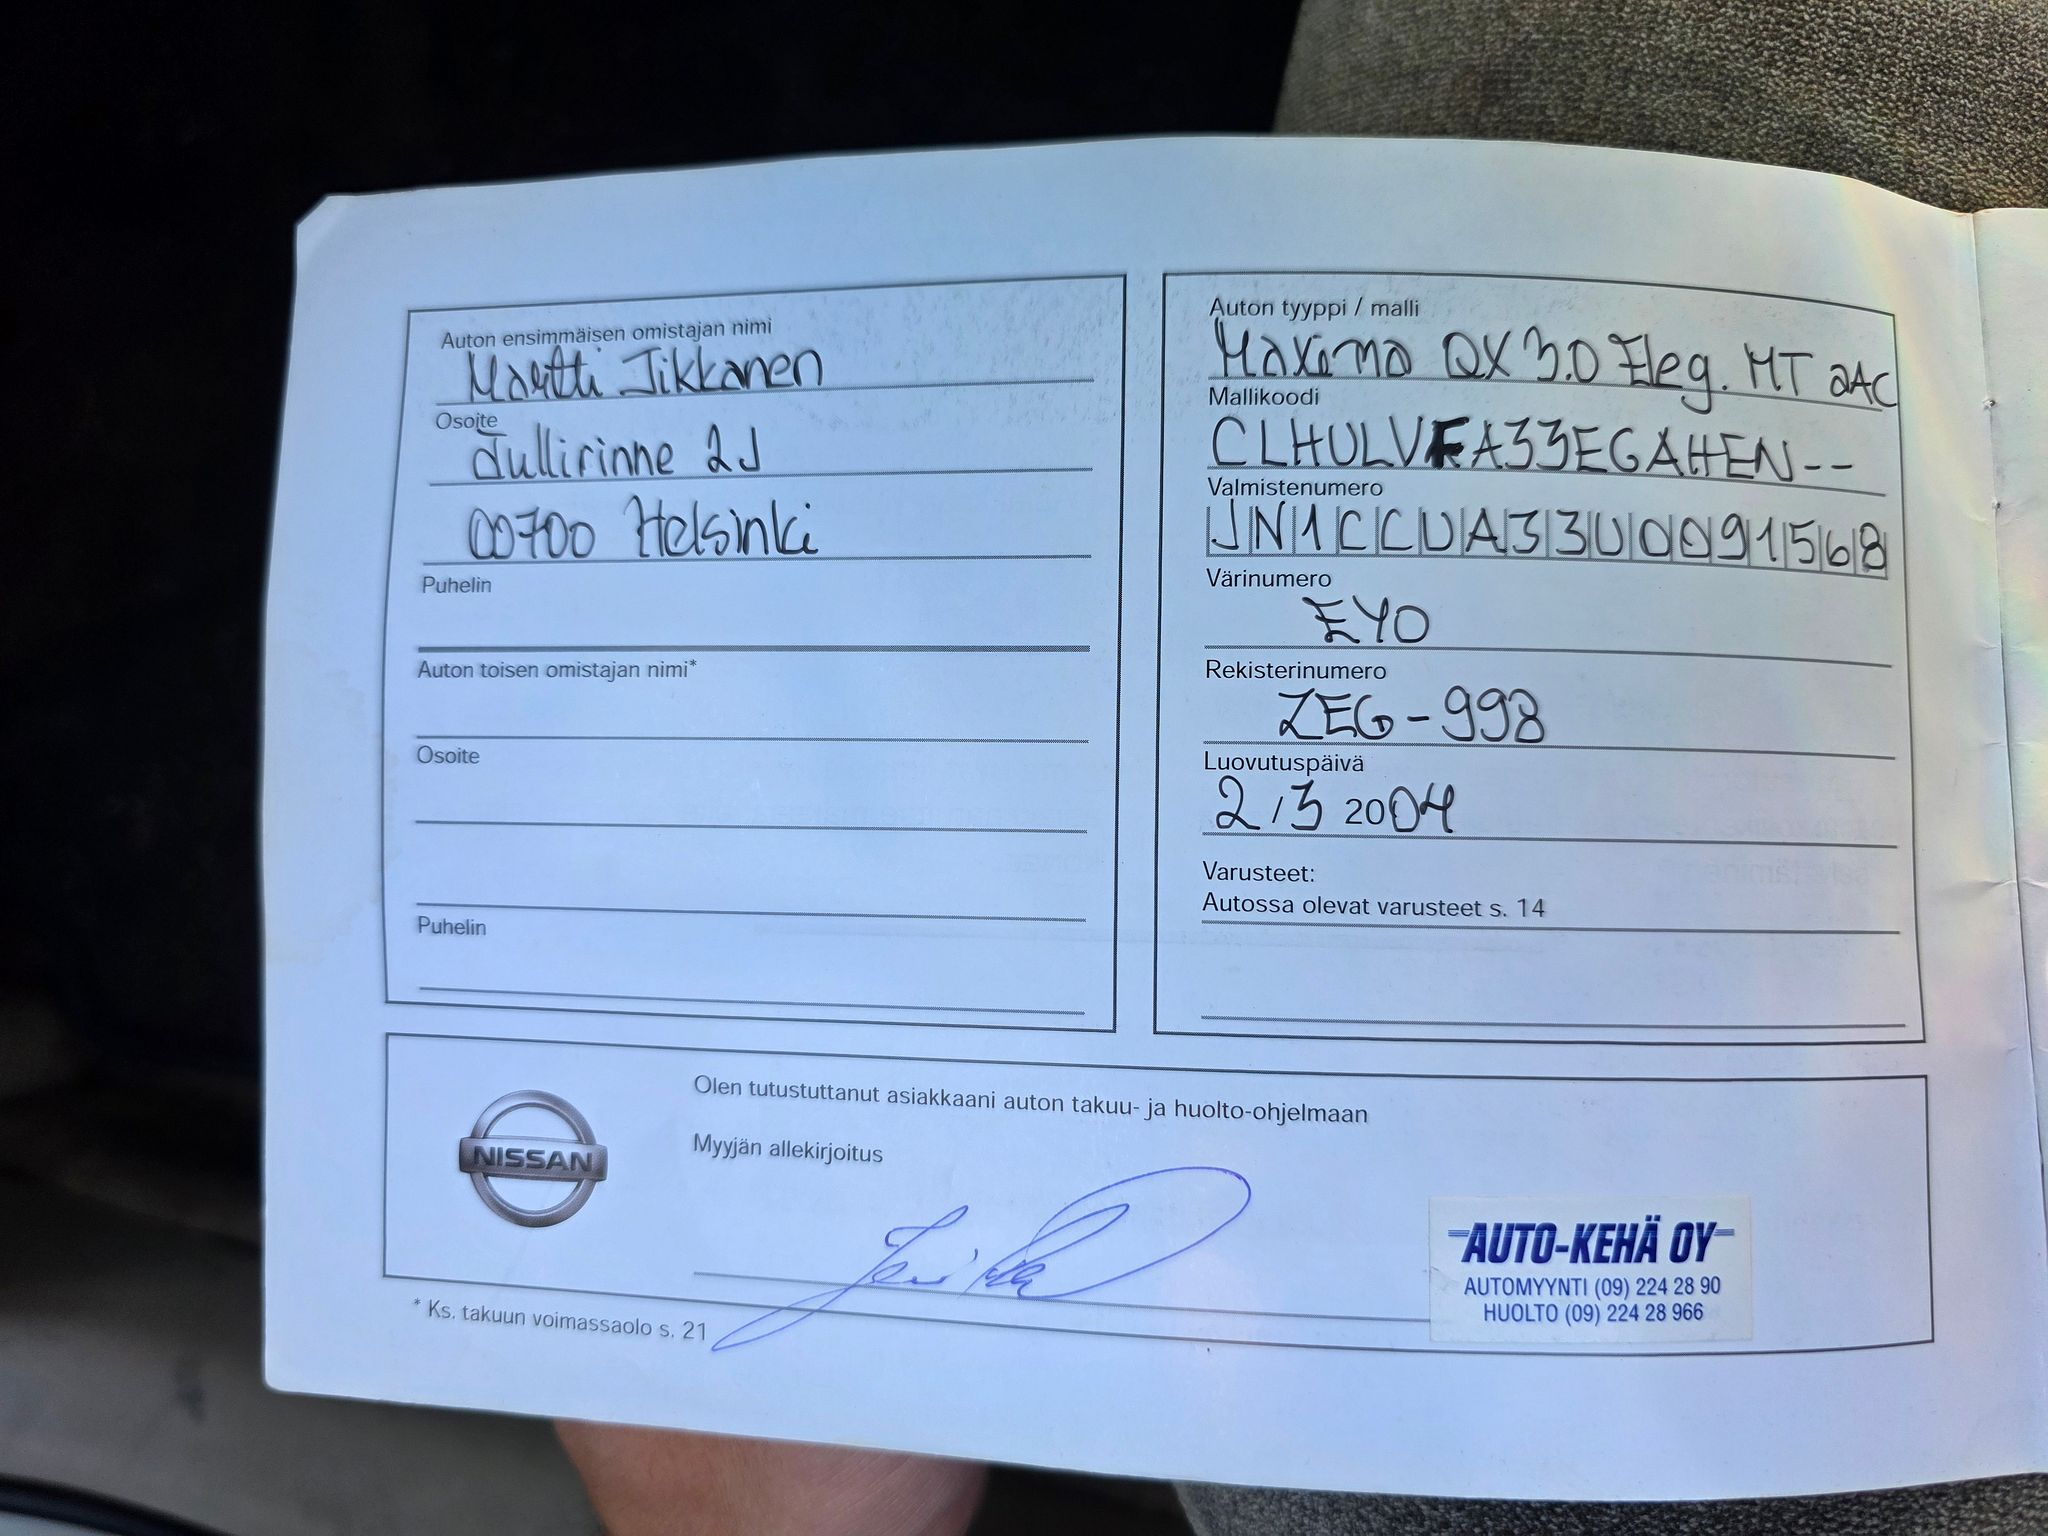 Auton ensimmäisen omistajan nimi
Martti Tikkanen
Osoite
Tullirinne 2J
00700 Helsinki
Puhelin
Auton toisen omistajan nimi*
Osoite
Puhelin
Auton tyyppi / malli
Maxima QX 3.0 Eleg. MT 2AC
Mallikoodi
CLHULVFA33EGAHEN--
Valmistenumero
JN1CCUA33U0091568
Värinumero
EY0
Rekisterinumero
ZEG-998
Luovutuspäivä
2/3 2004
Varusteet:
Autossa olevat varusteet s. 14
NISSAN
Olen tutustuttanut asiakkaani auton takuu- ja huolto-ohjelmaan
Myyjän allekirjoitus
AUTO-KEHÄ OY
AUTOMYYNTI (09) 224 28 90
HUOLTO (09) 224 28 966
* Ks. takuun voimassaolo s. 21